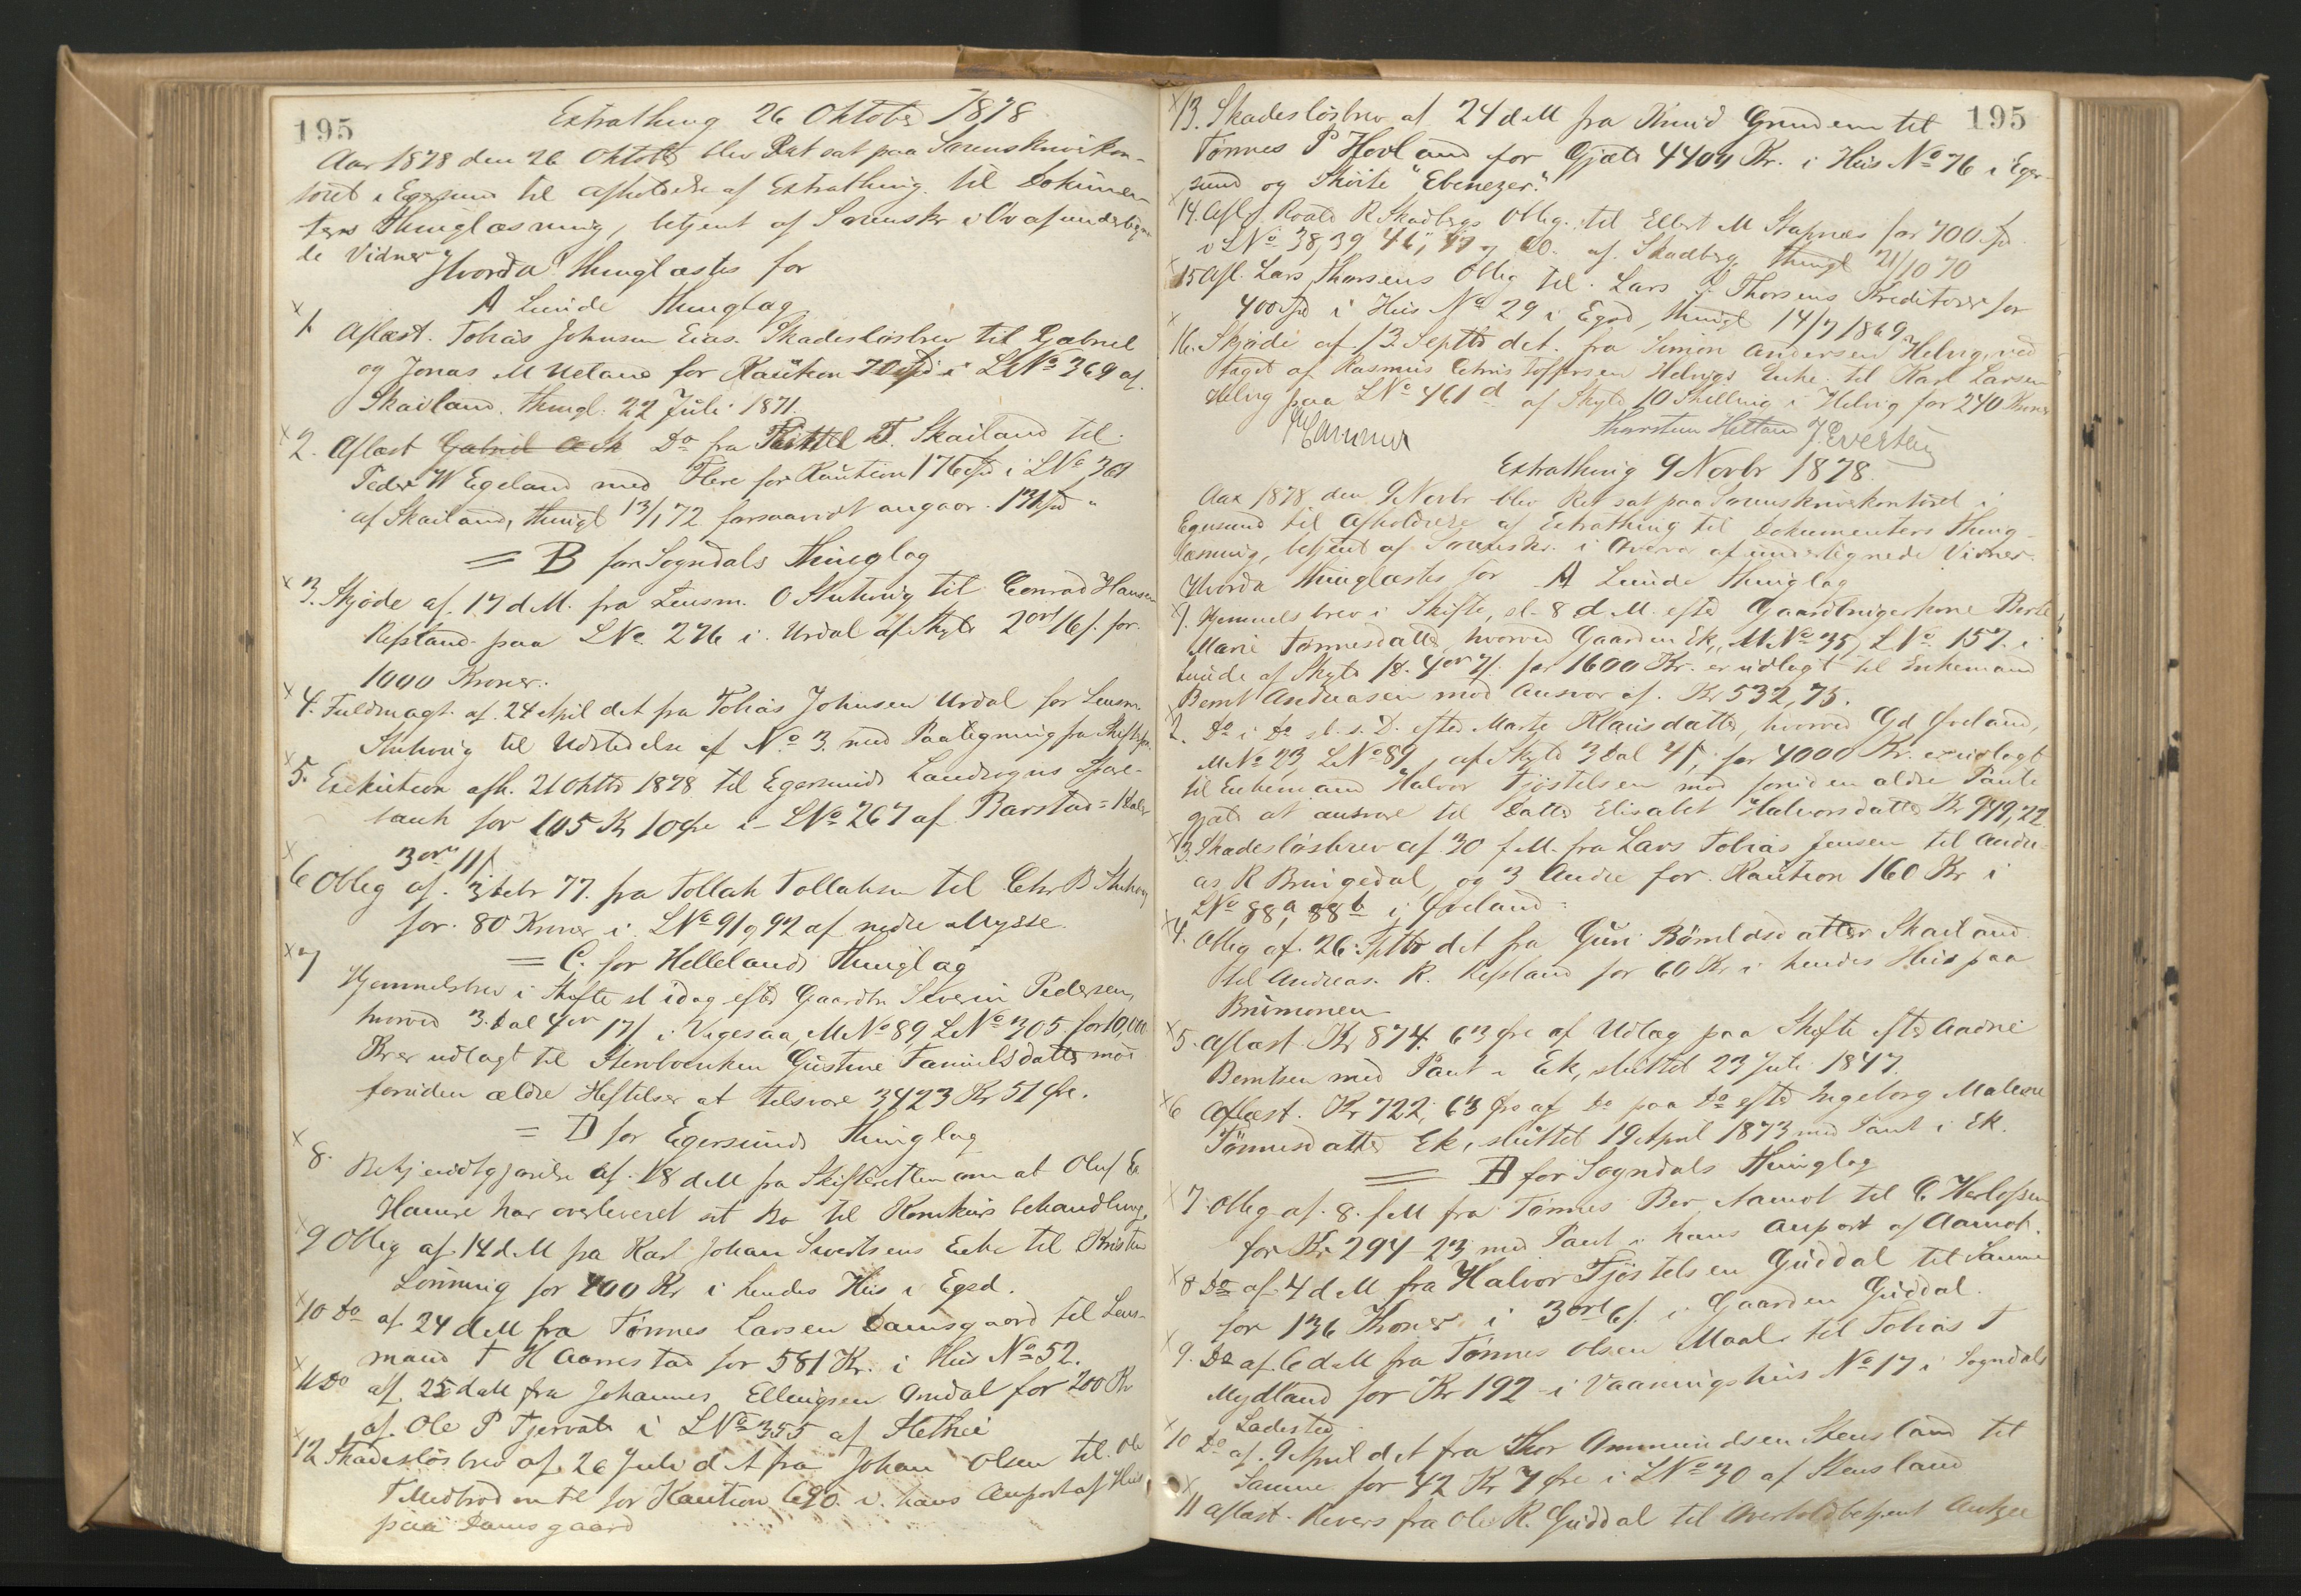 195
Extrathing 26 Oktober 1878
Aar 1878 den 26 Oktober blev Ret sat paa Sorenskriverkon-
toret i Egersund til Afholdelse af Extrathing til Dokumen-
ters Thinglæsning, betjent af Sorenskr i Ov af underlign-
de Vidner Hvorda thinglæstes for
A Lunde Thinglag
1 Aflæst. Tobias Johnsen Eias. Skadesløsbrev til Gabriel
og Jonas M Ueland for Kaution 70 Spd i LNo 369 af
Skailand. thingl. 22 Juli 1871.
2. Aflæst Do fra Kittel T. Skailand til
Peder W Egeland med Flere for Kaution 176 Spd i LNo 369
af Skailand, thingl 13/1 72 forsaavidt angaar 131 Spd
= B for Sogndals Thinglag
3. Skjøde af 17 d.M. fra Lensm. O Stuhoug til Conrad Hansen
Refsland paa LNo 276 i Urdal af Skyld 2 ort 16 s. for
1000 Kroner.
4. Fuldmagt af 24 April d.A fra Tobias Johnsen Urdal for Lensm
Stuhoug til Udstedelse af No 3 med Paategning fra Skiftefor.
5. Exekution afh. 21 Oktbr 1878 til Egersunds Landsogns Spare-
bank for 105 Kr 10 Øre i LNo 267 af Barstad = 1 daler
3 ort 11 s.
6 Oblig af 3 Febr 77. fra Tollak Tollaksen til Chr B Stuhoug
for 80 Kroner i LNo 91 og 92 af nedre Mysse.
= C. for Hellelands Thinglag
7 Hjemmelsbrev i Skifte sl idag efter Gaardbr Severin Pedersen,
hvorved 3 dal 4 ort 17 s i Vegesaa, MNo 89, LNo 305 for 10,000
Kr er udlagt til Stervboenken Gustine Tamielsdatter mod
foruden ældre Heftelser at tilsvare 3423 Kr 51 Øre.
= D for Egersunds Thinglag
8. Bekjendtgjørelse af 18 d.M fra Skifteretten om at Oluf E
Hamre har overleveret sit Bo til Konkurs behandling.
9 Oblig af 14 d.M fra Karl Johan Sivertsens Enke til Kristen
Lønning for 400 Kr i hendes Hus i Egsd.
10 Do af 24 d.M fra Tønnes Larsen Damsgaard til Lens-
mand T H Aarrestad for 581 Kr. i Hus No 52.
11 Do af 25 d.M fra Johannes Ellingsen Omdal for 200 Kr
af Ole P Tjervald i LNo 355 af
12 Skadesløsbrev af 26 Juli d.A fra Johan Olsen til Ole
T Midbrød for Kaution 690 i hans Anpart af Hus
paa Damsgaard
195
13. Skadesløsbrev af 24 d.M fra Knud Grundem til
Tønnes P Hovland for Gjæld 4404 Kr. i Hus No 76 i Eger-
sund og Skøite "Ebenezer."
14. Afl. Roald R Skadbergs Oblig. til Elbert M Stapnæs for 700 Spd
i LNo 38, 39, 41, af Skadberg, thingl 21/10 70
15 Afl. Lars Thorsens Oblig til Lars Thorsens Kreditorer for
400 Spd i Hus No 29 i Egsd, thingl 14/7 1869
16. Skjøde af 13 Septbr d.A. fra Simon Andersen Helvig, ved
taget af Rasmus Christoffersen Helvigs Enke til Karl Larsen
Helvig paa LNo 461 d af Skyld 10 Skilling i Helvig for 240 Kroner
Thorsten Hetland J. Evertsen
Extrathing 9 Novbr 1878.
Aar 1878 den 9 Novbr blev Ret sat paa Sorenskriverkontoret i
Egersund til Afholdelse af Extrathing til Dokumenters Thing-
læsning, betjent af Sorenskr. i Overvær af undertegnede Vidner.
Hvorda thinglæstes for A Lunde Thinglag
1. Hjemmelsbrev i Skifte, sl. 8 d.M. efter Gaardbrugerkone Berte
Marie Tønnesdatter, hvorved Gaarden Ek, MNo 35, LNo 157 i
Lunde af Skyld 1 d. 4 ort 7 s. for 1600 Kr. er udlagt til Enkemand
Bernt Andreasen mod Ansvar af Kr 532,75.
2. Do i Do sl. s. D. efter Marte Klausdatter, hvorved Gd Øveland,
MNo 23, LNo 89, af Skyld 3 dal 4 s, for 4000 Kr. er udlagt
til Enkemand Halvor Tjøstelsen mod foruden ældre Pante
gjæld at ansvare til Datter Elisabet Halvorsdatter Kr 949,22
3. Skadesløsbrev af 30 f.M. fra Lars Tobias Jensen til Andre-
as R Bringedal og 3 Andre for Kaution 160 Kr i
LNo 88a, 88b i Øveland.
4. Oblig af 26 Septbr d.A fra Guri Skailand
til Andreas R. Refsland for 60 Kr i hendes Hus paa
Brumonen
5. Aflæst Kr 874. 63 Øre af Udlæg paa Skifte efter Andrie
Berntsen med Pant i Ek, sluttet 23 Juli 1847.
6 Aflæst. Kr 722, 63 Øre af Do paa Do efter Ingeborg Malene
Tønnesdatter Ek, sluttet 19 April 1873 med Pant i Ek.
= B for Sogndals Thinglag
7. Oblig af 8. f.M fra Tønnes Ber. Aamot til C. Herlofsen
for Kr 294-23 med Pant i hans Anpart af Aamot.
8 Do af 4 d.M fra Halvor Tjøstelsen Guddal til Samme
for 136 Kroner i 3 ort 6 s. i Gaarden Guddal.
9. Do af 6 d.M fra Tønnes Olsen Maal til Tobias T
Mydland for Kr 192 i Vaaningshus No 17 i Sogndals
Ladested.
10 Do af 9 April d.A fra Thor Ommundsen Stensland til
Samme for 42 Kr 7 Øre i LNo 30 af Stensland
11 Aflæst. Revers fra Ole R. Guddal til Overtoldbetjent Antzee